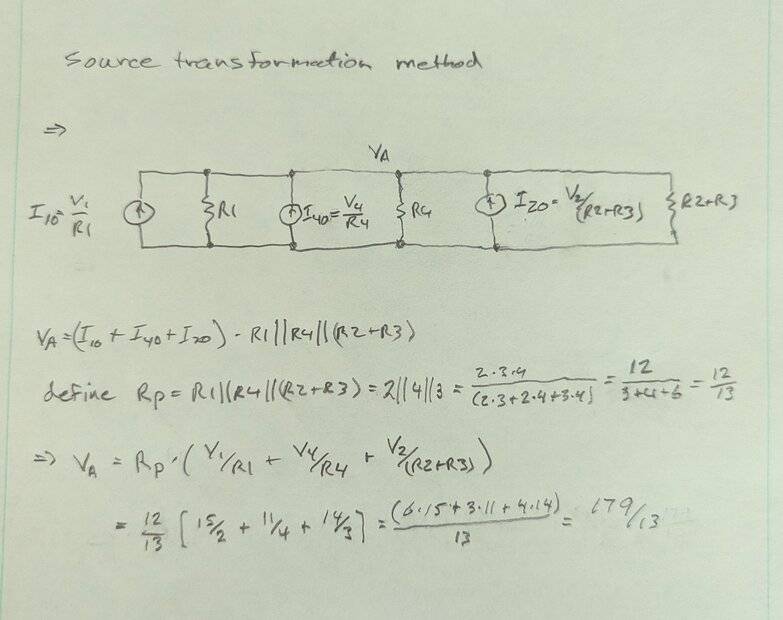 Source transformation method
⇒
VA
I10 = V1/R1
R1
I40 = V4/R4
R4
I20 = V2/(R2+R3)
R2+R3
VA = (I10 + I40 + I20) · R1||R4||(R2+R3)
define Rp = R1||R4||(R2+R3) = 2||4||3 = 2·3·4/(2·3+2·4+3·4) = 12/(3+4+6) = 12/13
⇒ VA = Rp · (V1/R1 + V4/R4 + V2/(R2+R3))
= 12/13 [15/2 + 11/4 + 14/3] = (6·15+3·11+4·14)/13 = 179/13